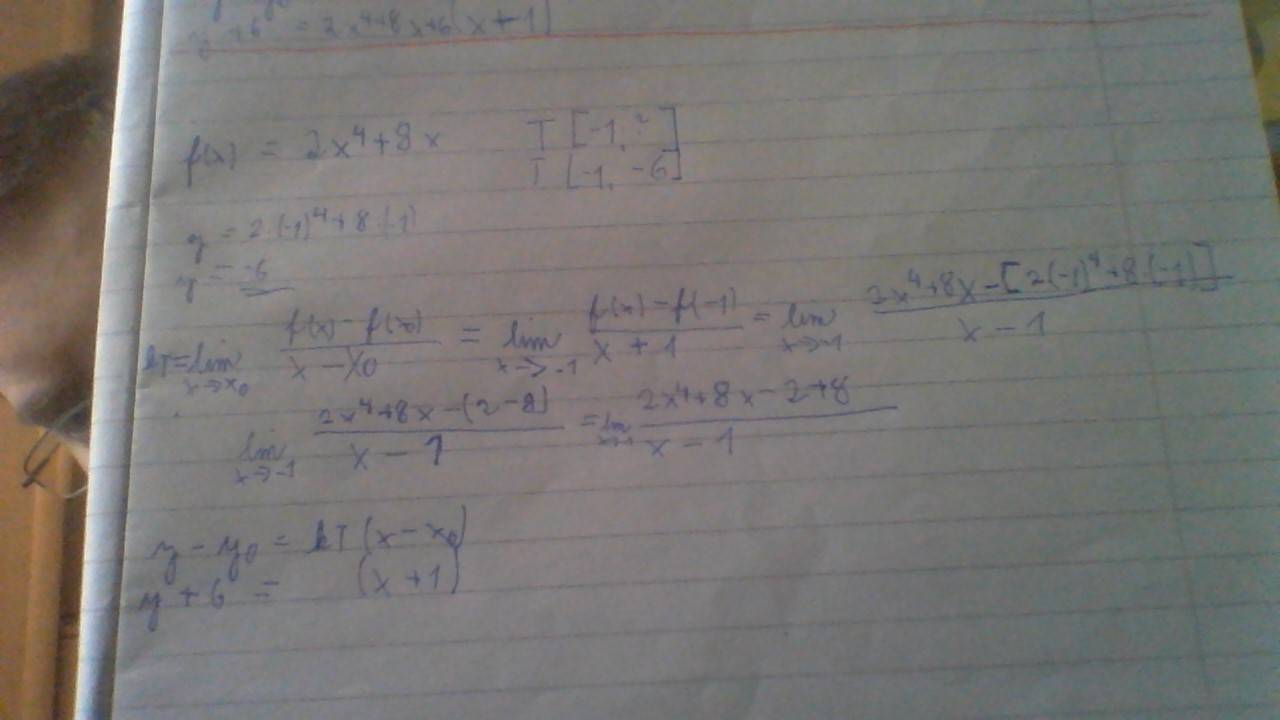 y + 6 = 2x⁴+8x+6(x+1)
f(x) = 2x⁴+8x T [-1, ?]
T [-1, -6]
y = 2·(-1)⁴+8·(-1)
y = -6
kT = lim x→x₀ f(x)-f(x₀) / x-x₀ = lim x→-1 f(x)-f(-1) / x+1 = lim x→-1 2x⁴+8x-[2(-1)⁴+8·(-1)] / x-1
lim x→-1 2x⁴+8x-(2-8) / x-1 = lim x→-1 2x⁴+8x-2+8 / x-1
y - y₀ = kT (x-x₀)
y + 6 = (x+1)